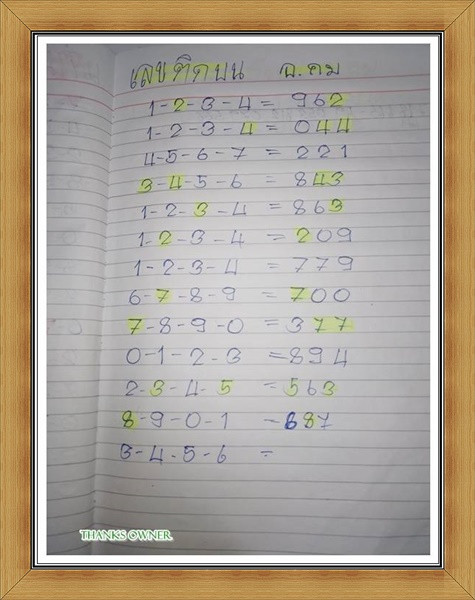 เลขติดบน ฉ.คม
1-2-3-4 = 962
1-2-3-4 = 044
4-5-6-7 = 221
3-4-5-6 = 843
1-2-3-4 = 863
1-2-3-4 = 209
1-2-3-4 = 779
6-7-8-9 = 700
7-8-9-0 = 377
0-1-2-3 = 894
2-3-4-5 = 563
8-9-0-1 = 687
3-4-5-6 =
THANKS OWNER.